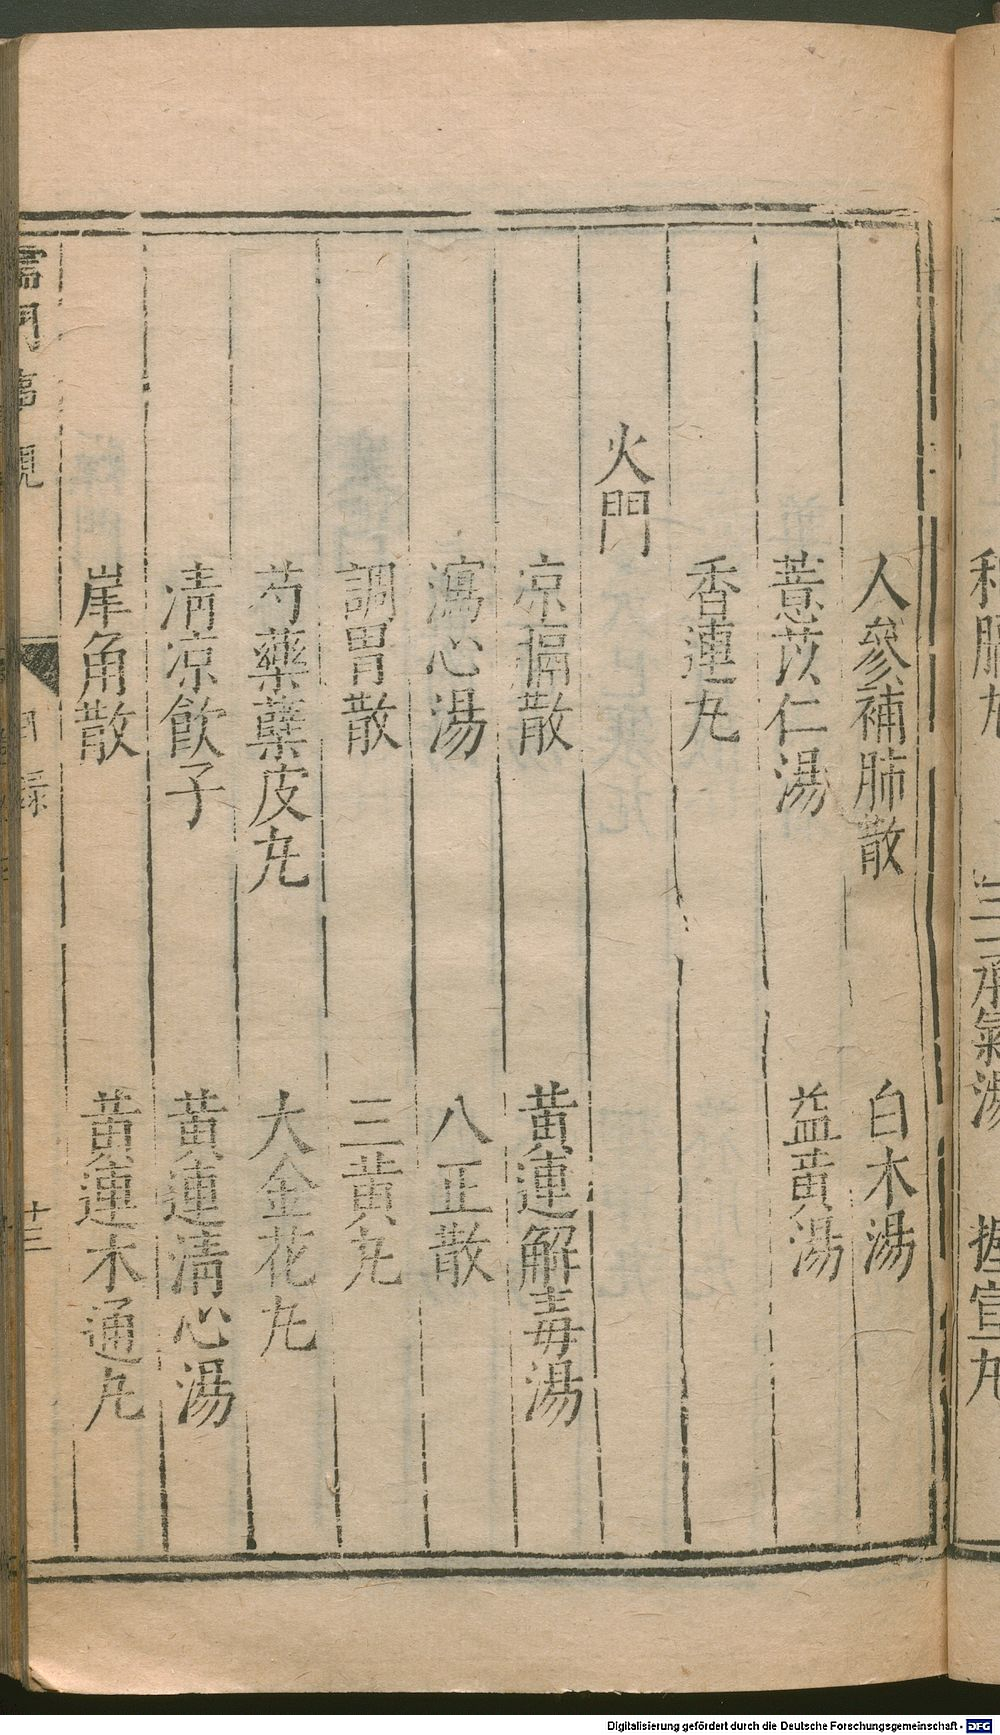 利膈丸 三一承氣湯 搜宣丸
人參補肺散 白木湯
薏苡仁湯 益黃湯
香連丸
火門
凉膈散 黃連解毒湯
瀉心湯 八正散
調胃散 三黃丸
芍藥蘗皮丸 大金花丸
清凉飲子 黃連清心湯
犀角散 黃連木通丸
儒門事親 目錄 十三
Digitalisierung gefördert durch die Deutsche Forschungsgemeinschaft - DFG